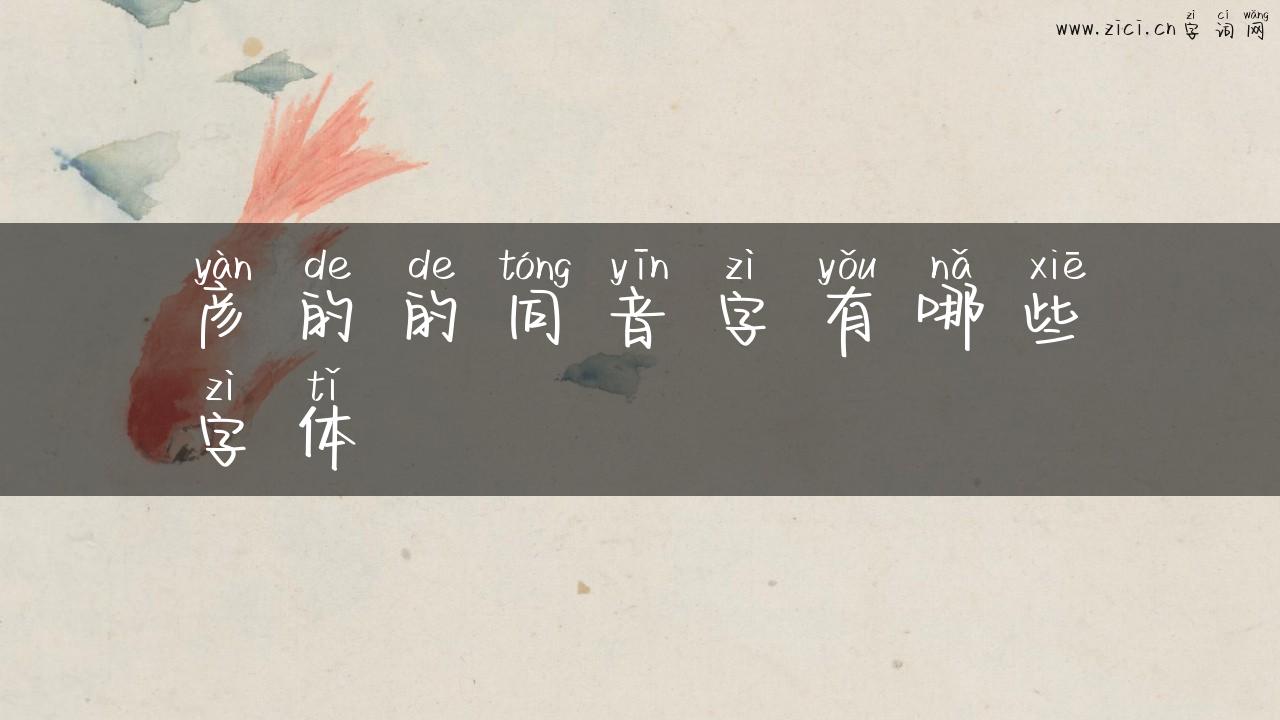 zì cí wǎng
www.zici.cn 字词网
yàn de de tóng yīn zì yǒu nǎ xiē
彦的的同音字有哪些
zì tǐ
字体